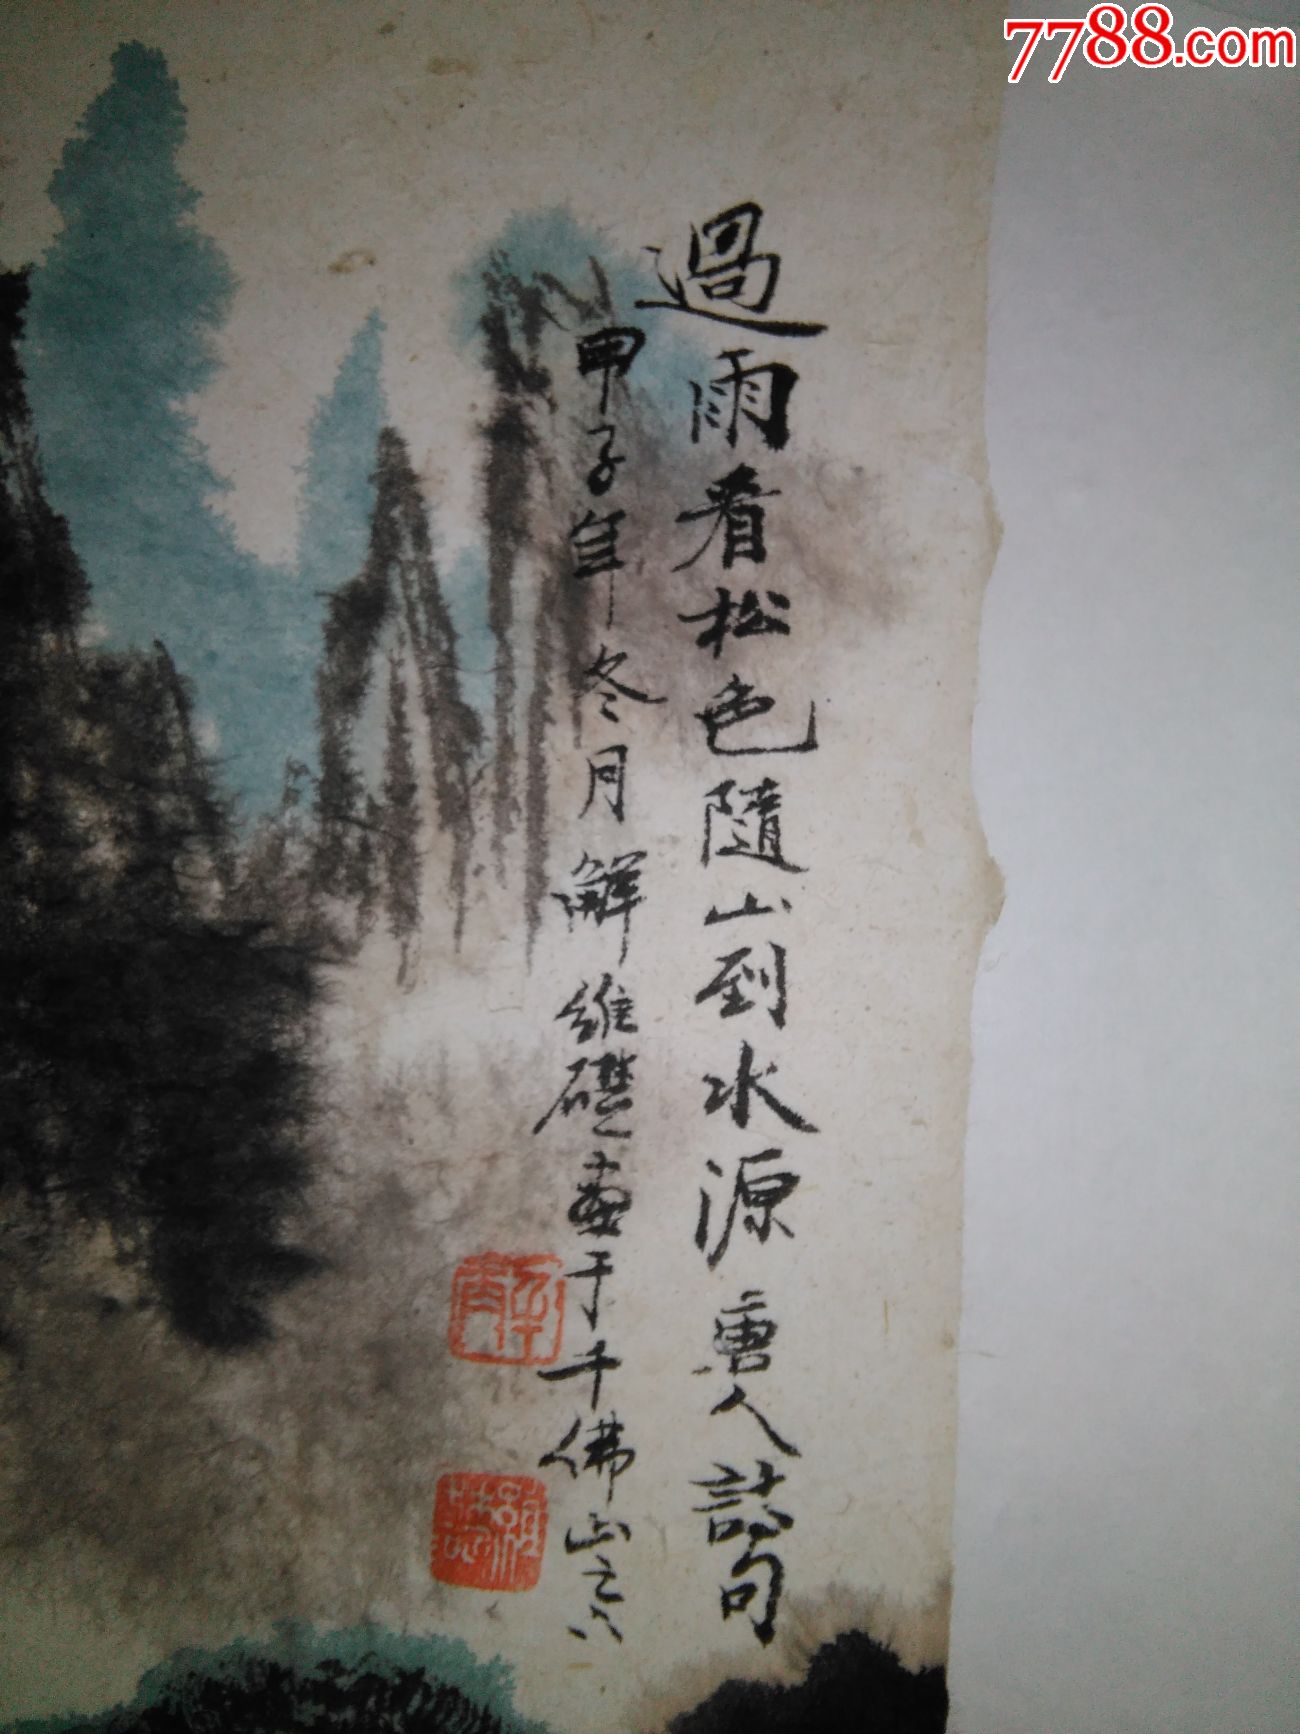 7788.com
過雨看松色隨山到水源唐人詩句
甲子年冬月解維礎畫于千佛山之下